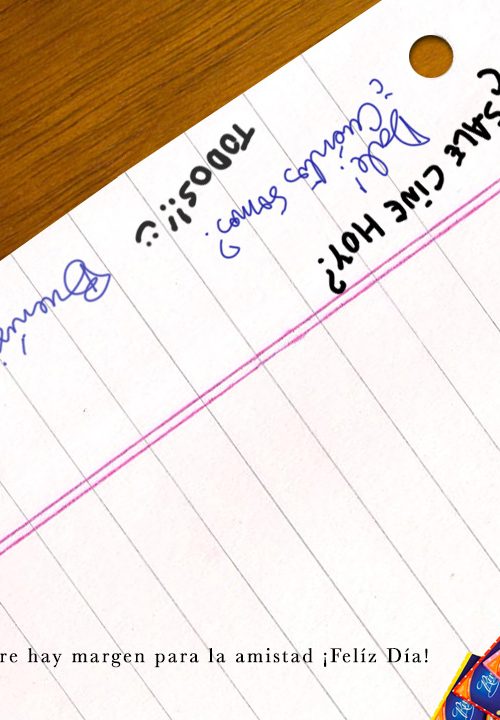 ¿SALE CINE HOY?
Dale!
¿Cuántos somos?
TODOS!!! :)
re hay margen para la amistad ¡Felíz Día!